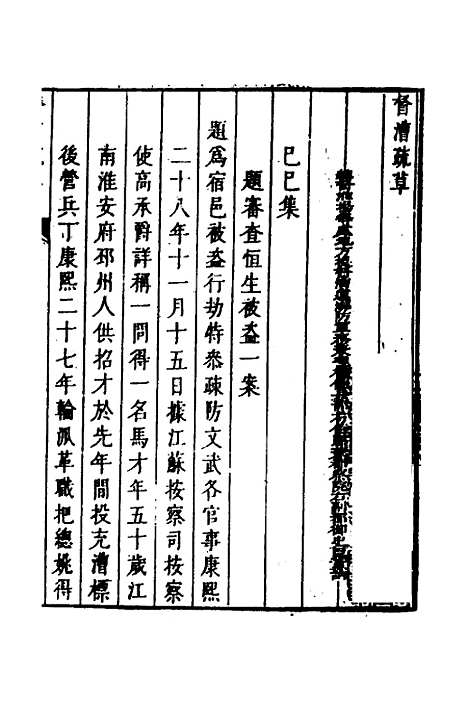 督漕疏草
己巳集
題審查恒生被盜一案
題為宿邑被盜行劫特叅疎防文武各官事康熙
二十八年十一月十五日據江蘇按察司按察
使高承爵詳稱一問得一名馬才年五十歲江
南淮安府邳州人供招才於先年間投充漕標
後營兵丁康熙二十七年輪派革職把總姚得